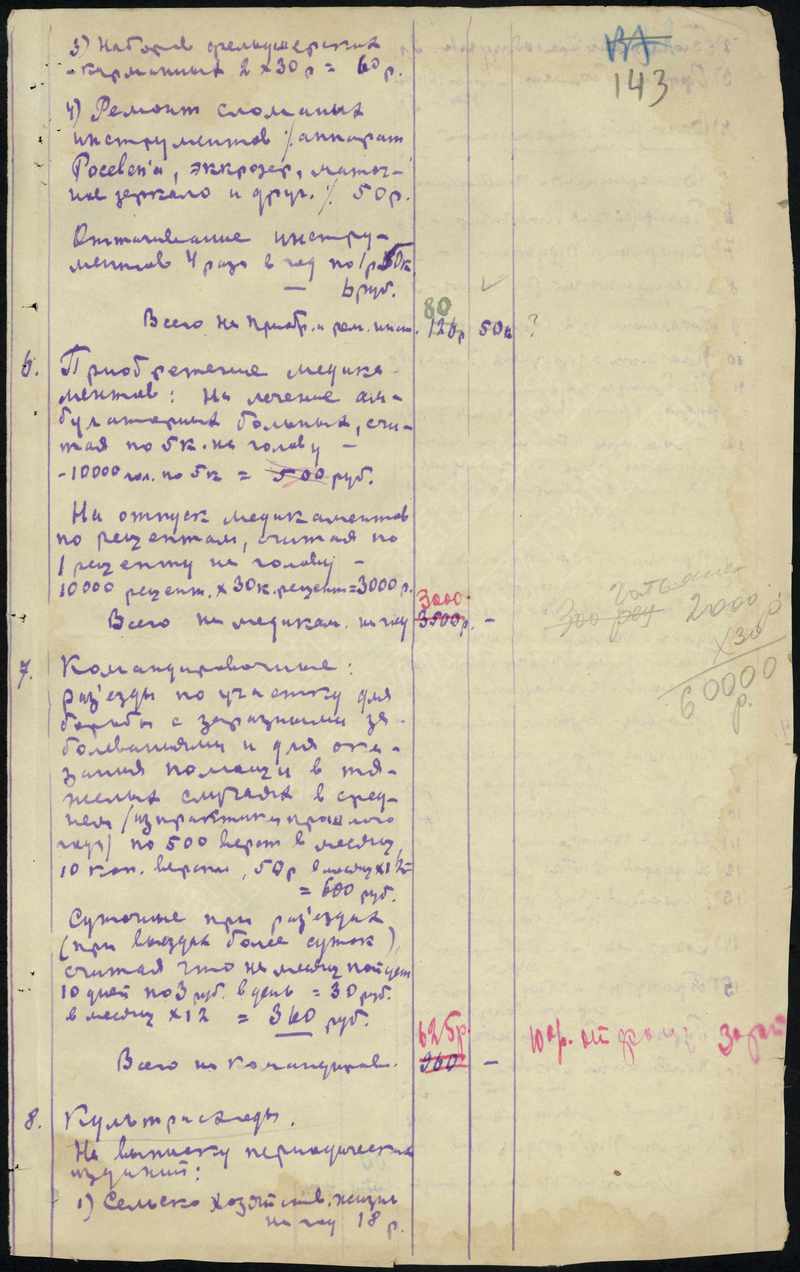 143
3) Наборов фельдшерских
карманных 2 х 30 р = 60 р.
4) Ремонт сломаных
инструментов /. аппарат
, эккрозер, маточ-
ное зеркало и друг. /. 50 р.
Оттачивание инстру-
ментов 4 раза в год по 1 р 50 к
— 6 руб.
80
Всего на приобр. и рем. инст. 126 р 50 к ?
6. Приобретение медика-
ментов: На лечение ам-
булаторных больных, счи-
тая по 5 к. на голову —
-10000 гол. по 5 к = 500 руб.
На отпуск медикаментов
по рецептам, считая по
1 рецепту на голову —
10000 рецепт. х 30 к. рецепт = 3000 р.
3000
Всего на медикам. на год 3500 р. —
300 2000
х 30
60000
р.
7. Командировочные:
раз'езды по участку для
борьбы с заразными за-
болеваниями и для ока-
зания помощи в тя-
желых случаях в сред-
нем /из практики прошлого
года/ по 500 верст в месяц,
10 коп. верста, 50 р в месяц х 12
= 600 руб.
Суточные при раз'ездах
(при выездах более суток),
считая что на месяц пойдет
10 дней по 3 руб. в день = 30 руб.
в месяц х 12 = 360 руб.
625 р.
Всего на командиров. 960 —
8. Культрасходы.
На выписку периодических
изданий:
1) Сельско хозяйств. жизнь
на год 18 р.